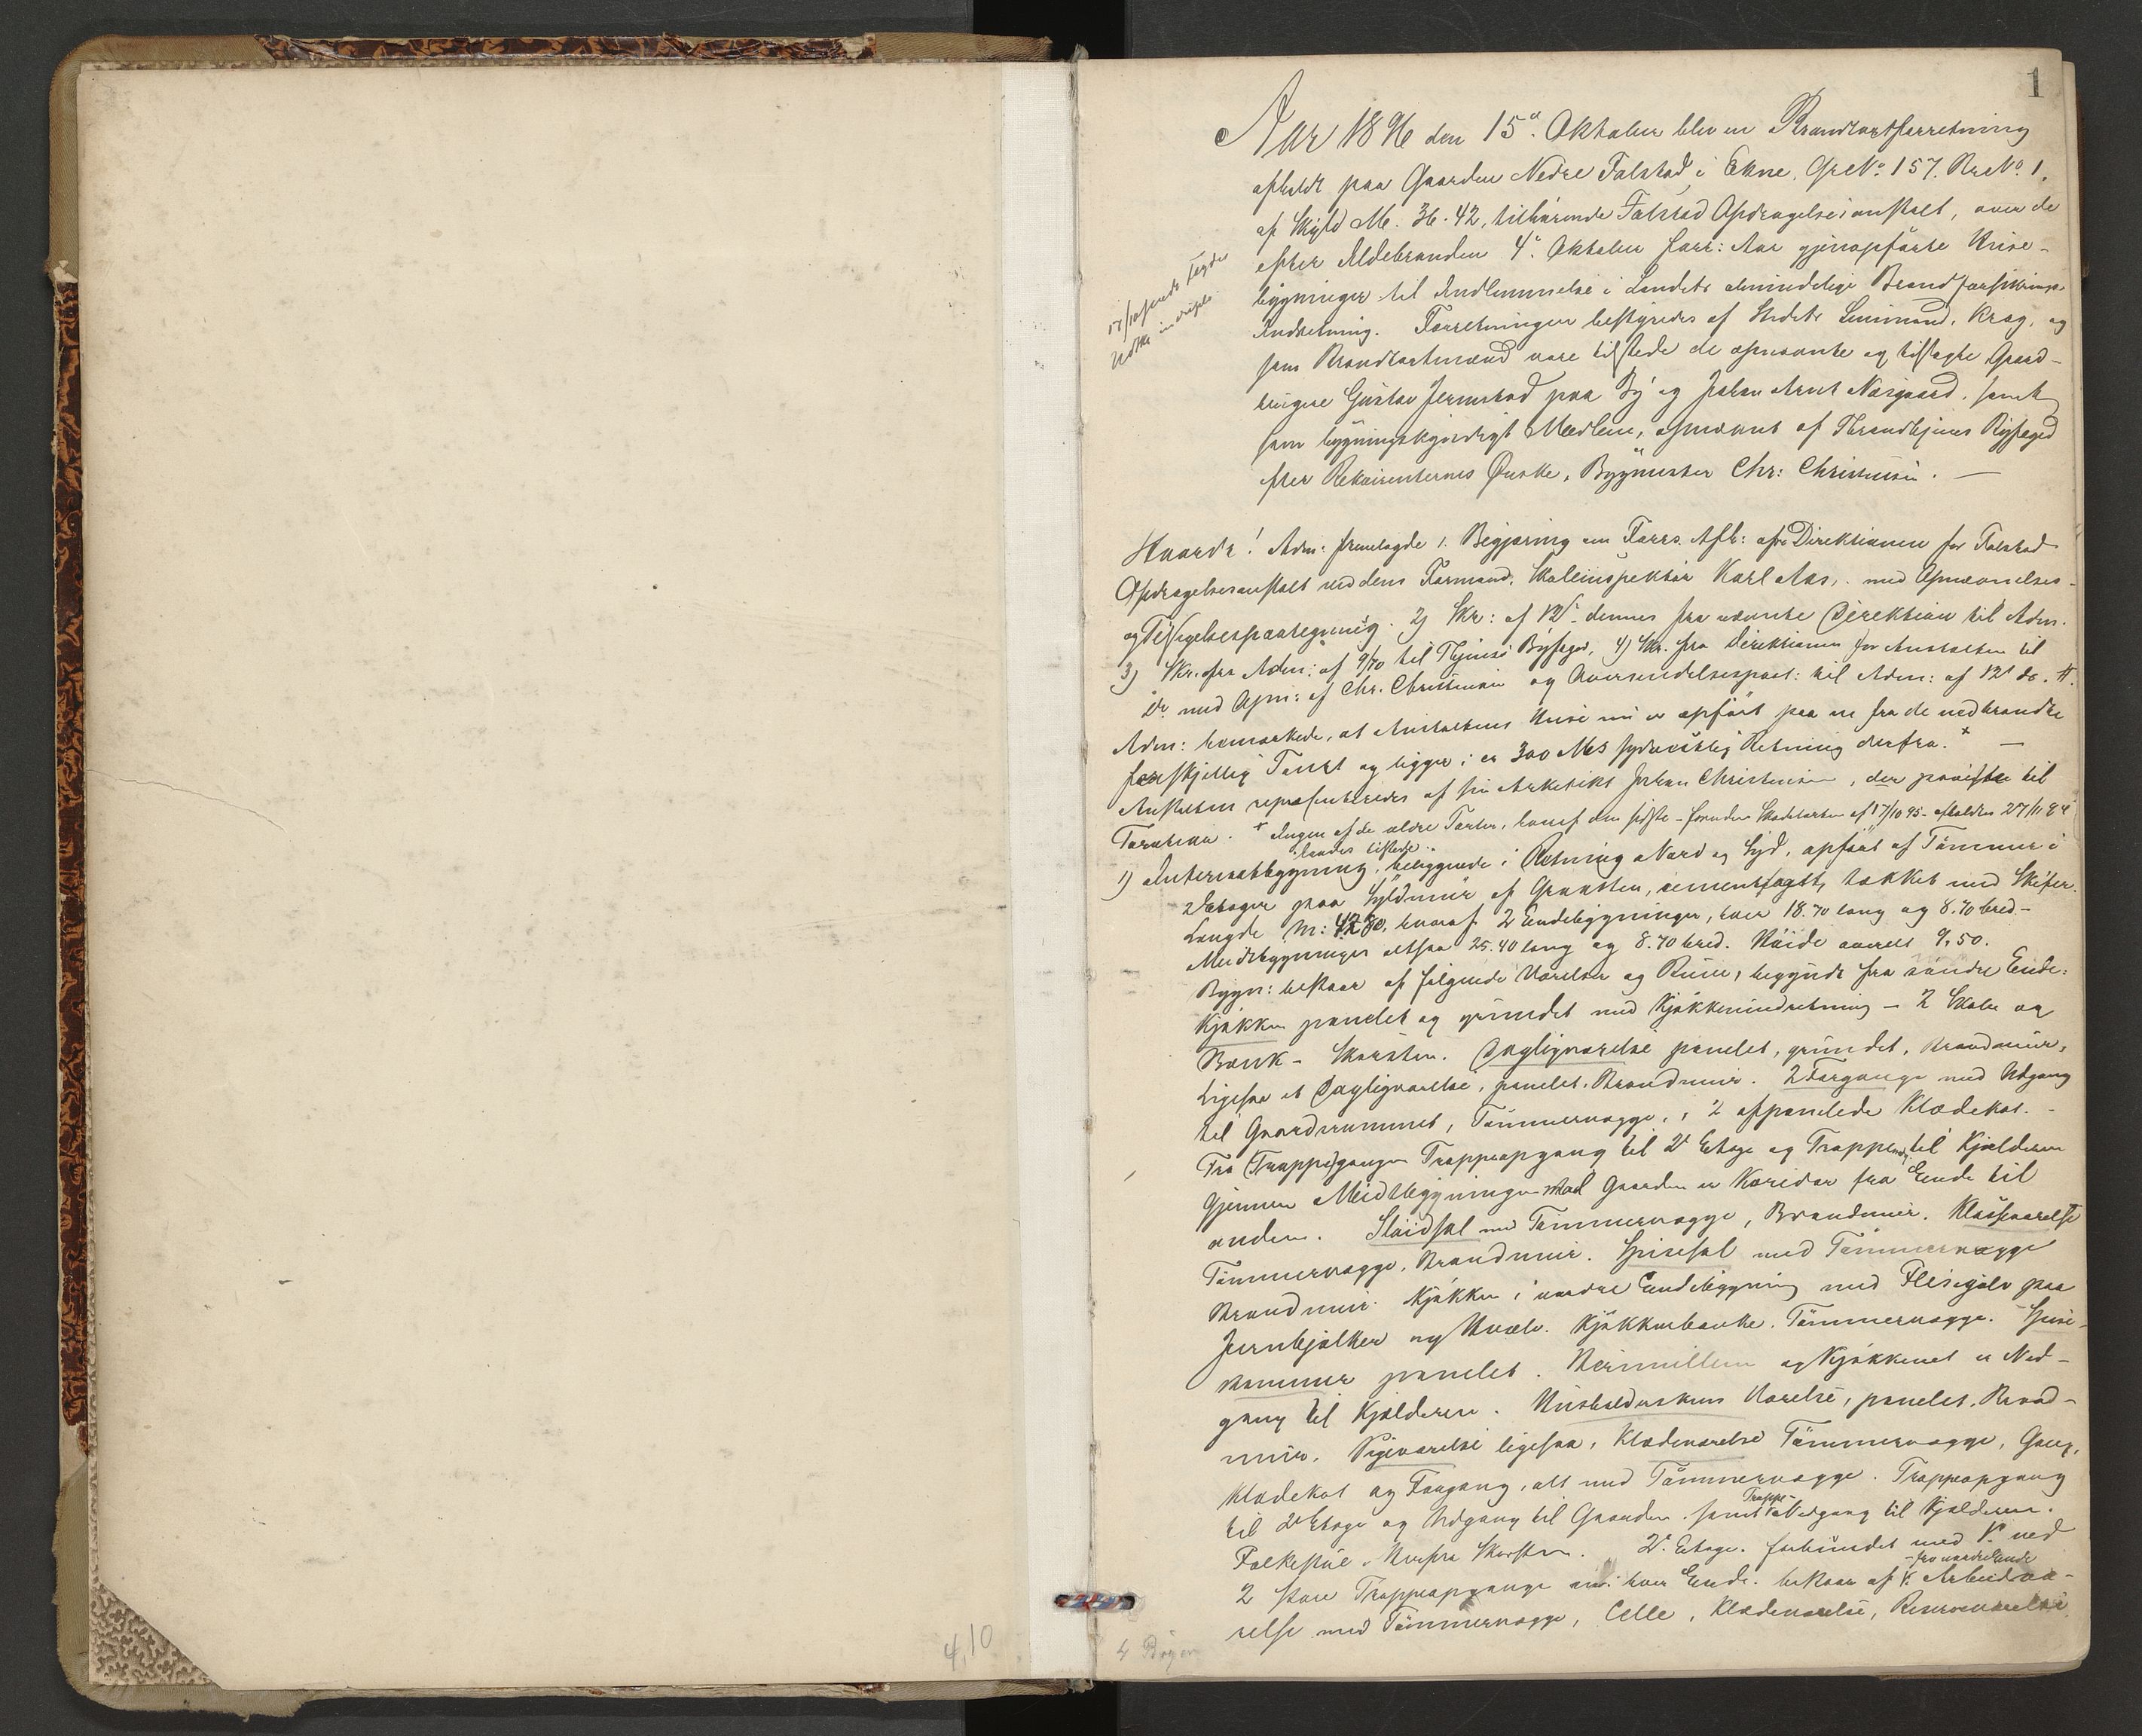 1
Aar 1896 den 15de Oktober blev en Brandtaxtforretning
afholdt paa Gaarden Nedre Falstad i Ekne, Gr.No. 157. Br.No. 1.
af Skyld M. 36.42, tilhørende Falstad Opdragelsesanstalt, over de
efter Ildebranden 4de Oktober forr: Aar gjenopførte Huse-
bygninger til Indlemmelse i Landets almindelige Brandforsikrings-
Indretning. Forretningen bestyredes af Stedets Lensmand, Krog, og
som Brandtaxtmænd vare tilstede de opnævnte og tilsagte Gaard-
brugere Gustav Jermstad paa By og Johan Arnt Norgaard, samt
som bygningskyndigt Medlem, opnævnt af Throndhjems Byfoged
efter Rekvirenternes Ønske, Bygmester Chr: Christensen. —
Hvorda! Adm: fremlagde 1. Begjæring om Forrs. Afh: fra Direktionen for Falstad
Opdragelsesanstalt ved dens Formand, Skoleinspektør Karl Aas, med Opnævnelses-
og Tilsigelsespaategning. 2) Skr: af 12te dennes fra nævnte Direktion til Adm.
3) Skr. fra Adm: af 9/10 til Thjems Byfoged, 4) Skr. fra Direktionen for Anstalten til
Do med Opn: af Chr. Christensen og Oversendelsespaat: til Adm: af 12te ds.
Adm: bemærkede, at Anstaltens Huse nu er opført paa en fra de nedbrændte
forskjellig Tomt og ligger i ca 300 M's sydvestlig Retning derfra. x —
Anstalten repræsenteredes af sin Arkitekt Johan Christensen, der paaviste til
Taxation. x Ingen af de ældre Taxter, hvoraf den sidste - foruden Skadetaxten af 17/10 95 - afholdtes 27/11 94
havdes tilstede.
1) Internatbygning, beliggende i Retning Nord og Syd, opført af Tømmer i
2 Etager paa Syldmur af Graasten, cementfuget, tækket med Skifer.
Længde M: 42.80, hvoraf 2 Endebygninger, hver 18.70 lang og 8.70 bred. -
Midtbygningen altsaa 25.40 lang og 8.70 bred. Høide overalt 9.50.
Bygn: bestaar af følgende Værelser og Rum, begyndt fra søndre Ende:
Kjøkken panelet og grundet med Kjøkkenindretning - 2 Skabe og
Bænk - Skorsten. Dagligværelse panelet, grundet, Brandmur,
Ligesaa et Dagligværelse, panelet. Brandmur. 2 Forgange med Udgang
til Gaardsrummet, Tømmervægge, 2 afpanelede Klædekot. -
Fra (Trappe)gangen Trappeopgang til 2den Etage og Trappenedg. til Kjælderen
Gjennem Midtbygningen mod Gaarden er Koridor fra Ende til
anden. Sløidsal med Tømmervægge, Brandmur. Klasseværelse
Tømmervægge, Brandmur. Spisesal med Tømmervægge
Brandmur. Kjøkken i nordre Endebygning med Flisegulv paa
Jernbjælker og Hvælv. Kjøkkenbænke. Tømmervægge. Spise-
kammer panelet. Herimellem og Kjøkkenet er Ned-
gang til Kjælderen. Husholderskens Værelse, panelet. Brand-
mur. Pigeværelse ligesaa, Klædeværelse Tømmervægge, Gang,
Klædekot og Forgang, alt med Tømmervægge. Trappeopgang
til 2den Etage og Udgang til Gaarden, samt Trappe-Nedgang til Kjælderen.
2den Etage, forbundet med 1. ved
2 store Trappeopgange en i hver Ende, bestaar af - fra nordre Ende - 1. Arbeidsvæ-
relse med Tømmervægge, Celle, Klædeværelse, Reserveværelse
4,10
4 Bøger